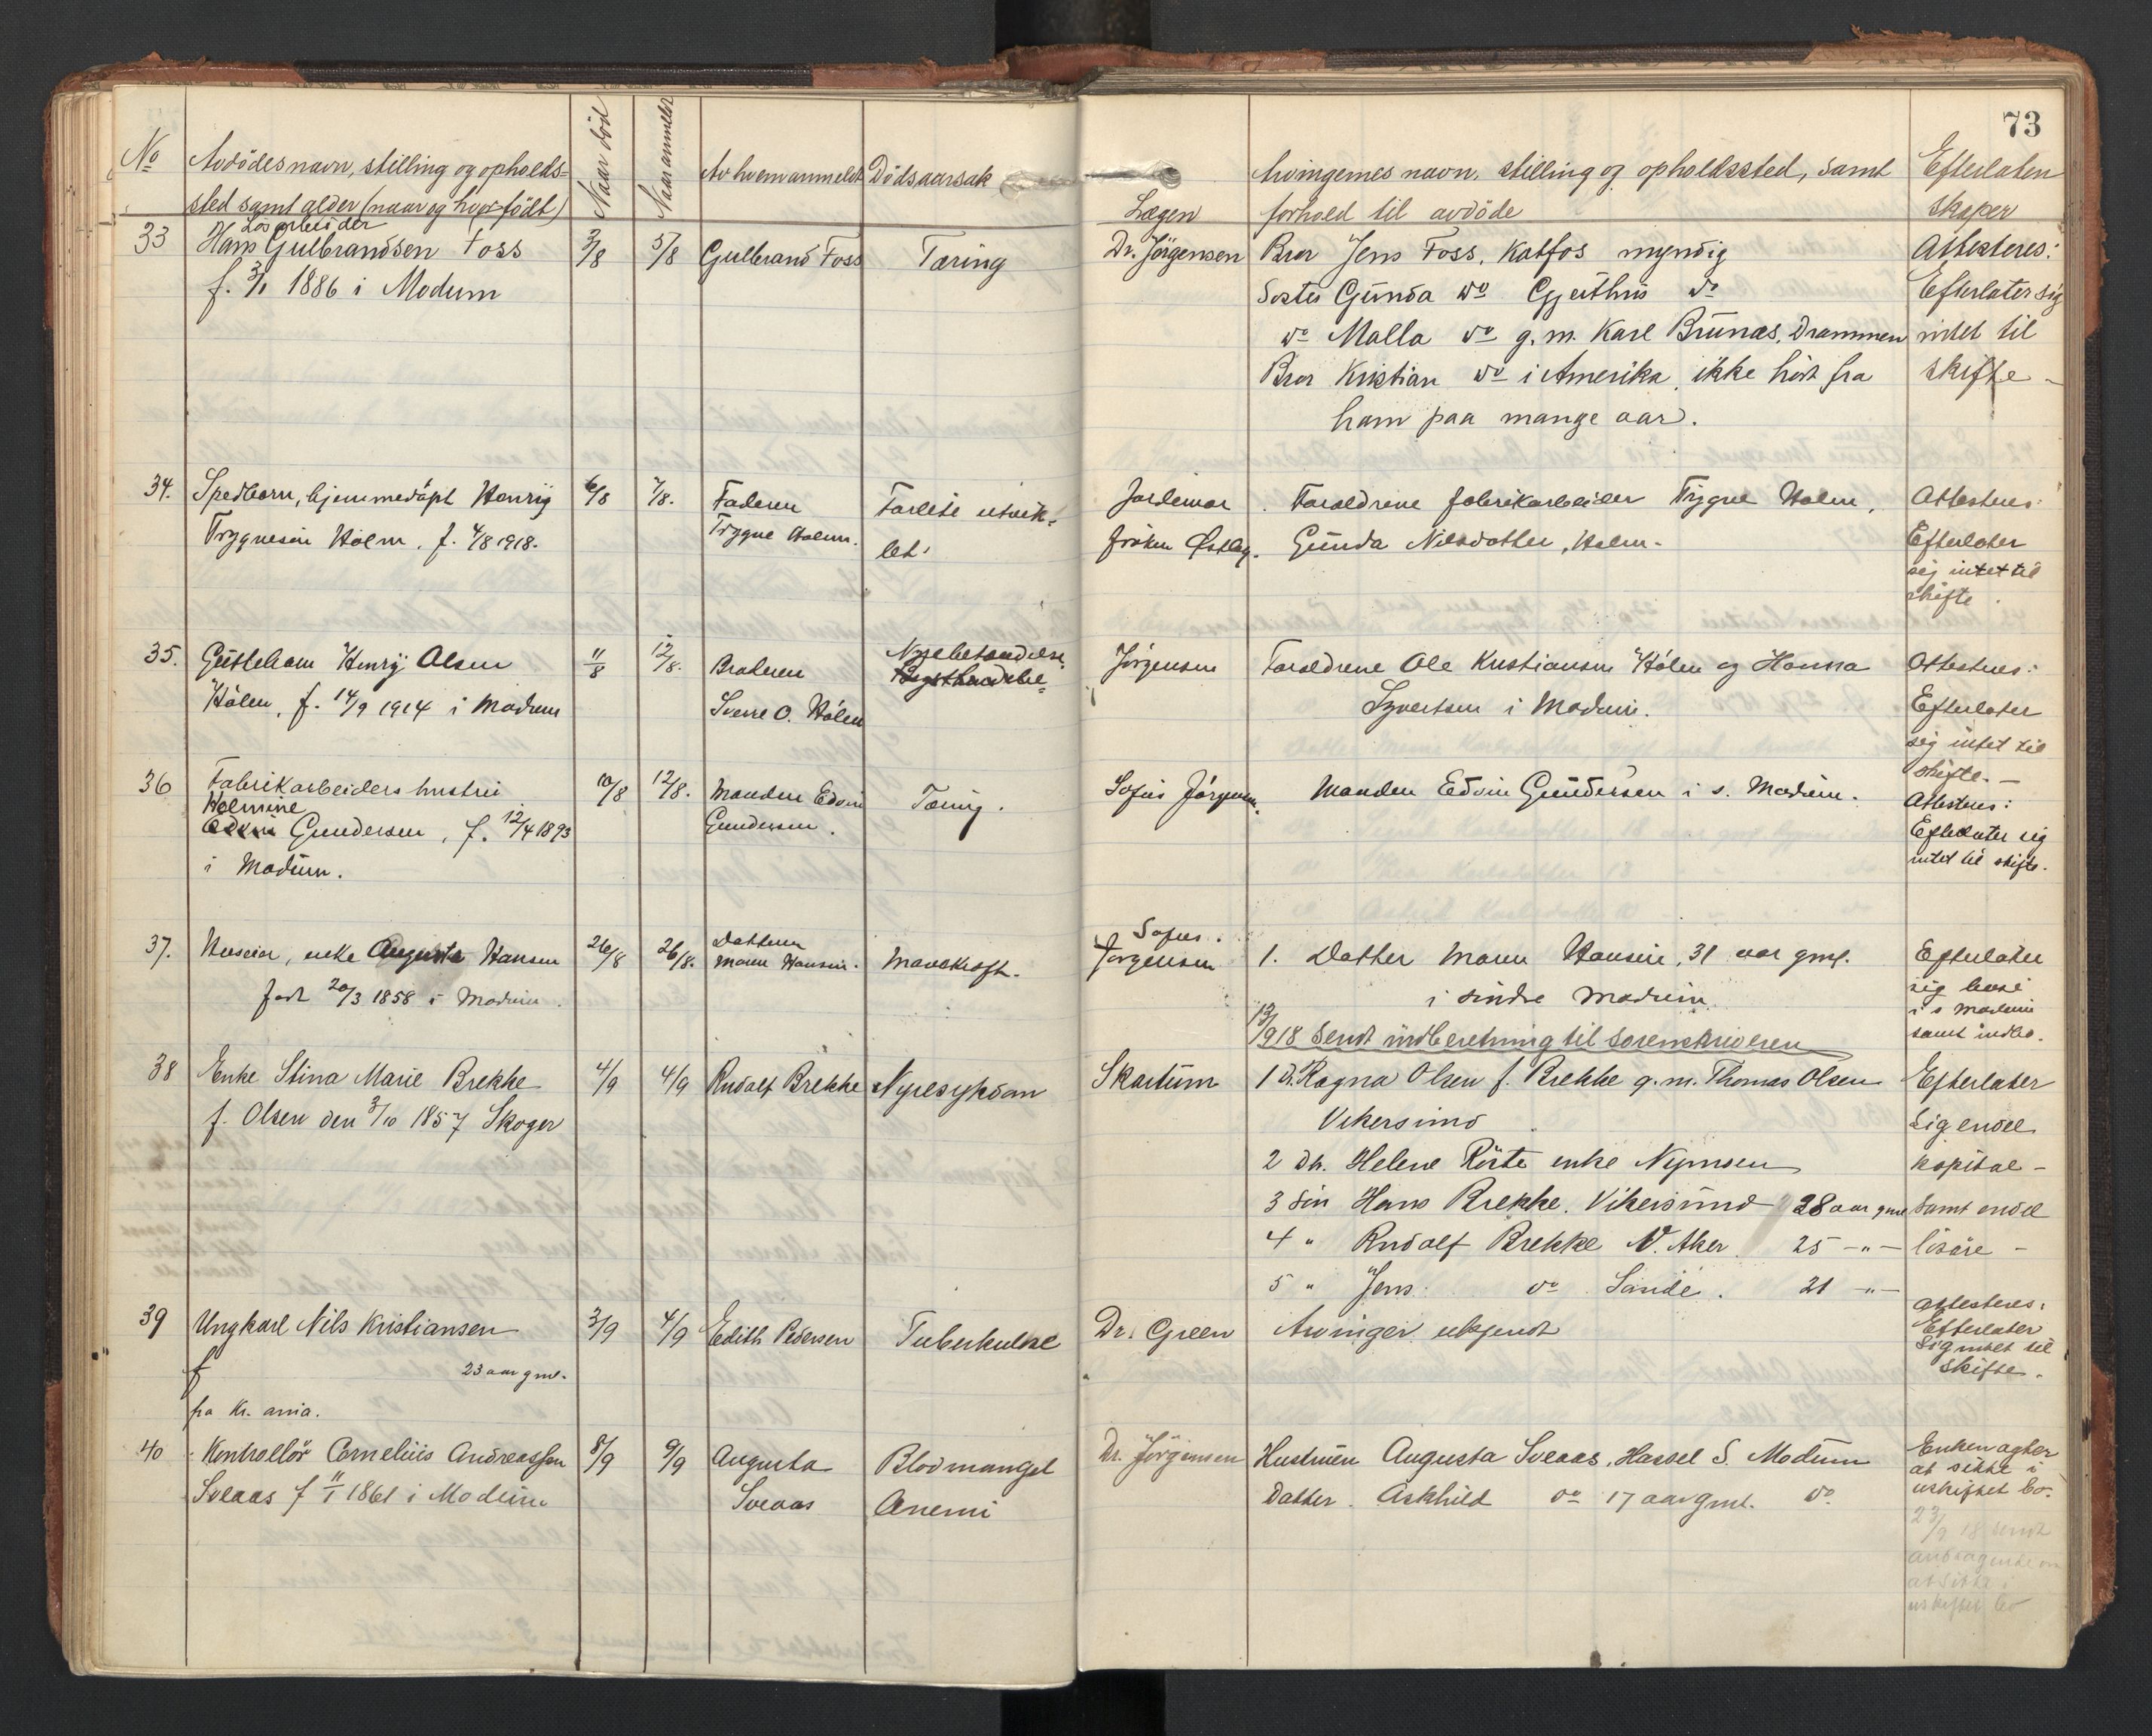 73
No Avdödes navn, stilling og opholds- Naar död Naar anmeldt Av hvem anmeldt Dödsaarsak Arvingernes navn, stilling og opholdssted, samt Efterlaten
sted samt alder (naar og hvor födt) Lægen forhold til avdöde skaper
Lösarbeider
33 Hans Gulbrandsen Foss 3/8 5/8 Gulbrand Foss Tæring Dr. Jörgensen Bror Jens Foss, Katfos myndig Attesteres:
f. 3/1 1886 i Modum Söster Gunda do Gjeithus do Efterlater sig
do Malla do g.m. Karl Brunæs, Drammen intet til
Bror Kristian do i Amerika, ikke hört fra skifte -
ham paa mange aar.
34. Spedbarn, hjemmedöpt Henrij 6/8 7/8. Faderen Forlite utvik- Jordemor Foreldrene fabrikarbeider Trygve Holm, Attesteres:
Trygvesön Holm, f. 4/8 1918. Trygve Holm. let. fröken Østby. Gunda Nilsdatter, Holm. Efterlater
sig intet til
skifte.
35. Guttebarn Henrij Olsen 11/8 12/8. Broderen Nyrebetændelse Jörgensen Foreldrene Ole Kristiansen Hólen og Hanna Attesteres:
Hólen, f. 14/9 1914 i Modum Sverre O. Hólen Syvertsen i Modum. Efterlater
sig intet til
skifte. -
36 Fabrikarbeiders hustru 10/8 12/8. Manden Edvin Tæring. Sofus Jörgensen Manden Edvin Gundersen i s. Modum. Attesteres:
Helmine Gundersen, f. 12/4 1893 Gundersen. Efterlater sig
i Modum. intet til skifte.
37. Huseier, enke Augusta Hansen 26/8 26/8. Datteren Maren Hansen. Mavekræft. Sofus Jörgensen 1. Datter Maren Hansen, 31 aar gml. Efterlater
födt 20/3 1858 i Modum. i söndre Modum. sig hus i
i s Modum
13/9 18 Sendt indberetning til sorenskriveren samt indbo.
38 Enke Stina Marie Brekke 4/9 4/9 Rudolf Brekke Nyresykdom Skartum 1 D. Ragna Olsen f. Brekke g.m. Thomas Olsen Efterlater
f. Olsen den 3/10 1857 Skoger Vikersund sig endel
2 Dh. Helene Röste enke Nymoen kapital -
3 Sön Hans Brekke. Vikersund 28 aar gml samt endel
4 " Rudolf Brekke V. Aker 25 -"- lösöre -
5 " Jens do Sande. 21 -"-
39 Ungkarl Nils Kristiansen 3/9 4/9 Edith Pedersen Tuberkulose Dr. Green Arvinger ukjendt Attesteres:
f 23 aar gml. Efterlater
fra Kr. ania. sig intet til
skifte.
40 Kontrollör Cornelius Andreassen 8/9 9/9 Augusta Blodmangel Dr. Jörgensen Hustruen Augusta Sveaas, Hassel S. Modum Enken agter
Sveaas f 11/1 1861 i Modum Sveaas Anemi Datter. Askhild do 17 aar gml. do at sitte i
uskiftet bo.
23/9 18 sendt
andragende om
at sitte i
uskiftet bo